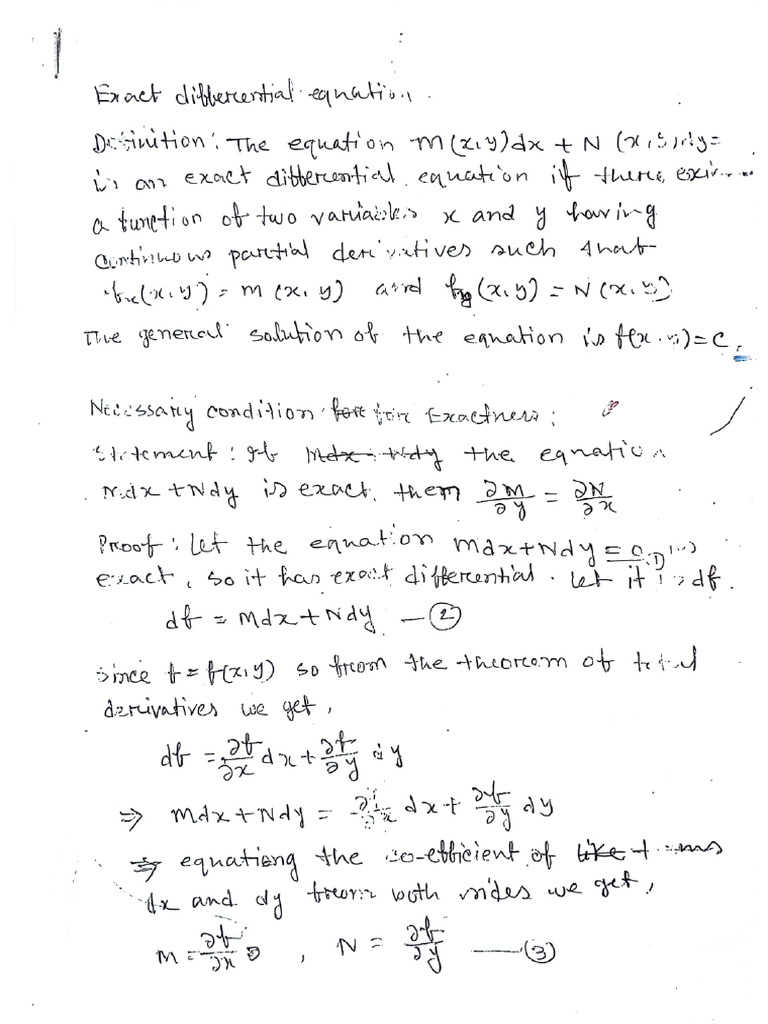 Exact differential equation.
Definition: The equation M(x,y)dx + N(x,y)dy=
is an exact differential equation if there
a function of two variables x and y having
continuous partial derivatives such that
fx(x,y) = M(x,y) and fy(x,y) = N(x,y)
The general solution of the equation is f(x,y)=C.
Necessary condition for Exactness:
Statement: If the equation
Mdx + Ndy is exact, them ∂M/∂y = ∂N/∂x
Proof: Let the equation Mdx+Ndy = 0
exact, so it has exact differential. Let it is df.
df = Mdx + Ndy — ②
Since f = f(x,y) so from the theorem of total
derivatives we get,
df = ∂f/∂x dx + ∂f/∂y dy
⇒ Mdx + Ndy = ∂f/∂x dx + ∂f/∂y dy
equationg the co-efficient of
dx and dy from both sides we get,
M = ∂f/∂x , N = ∂f/∂y —③